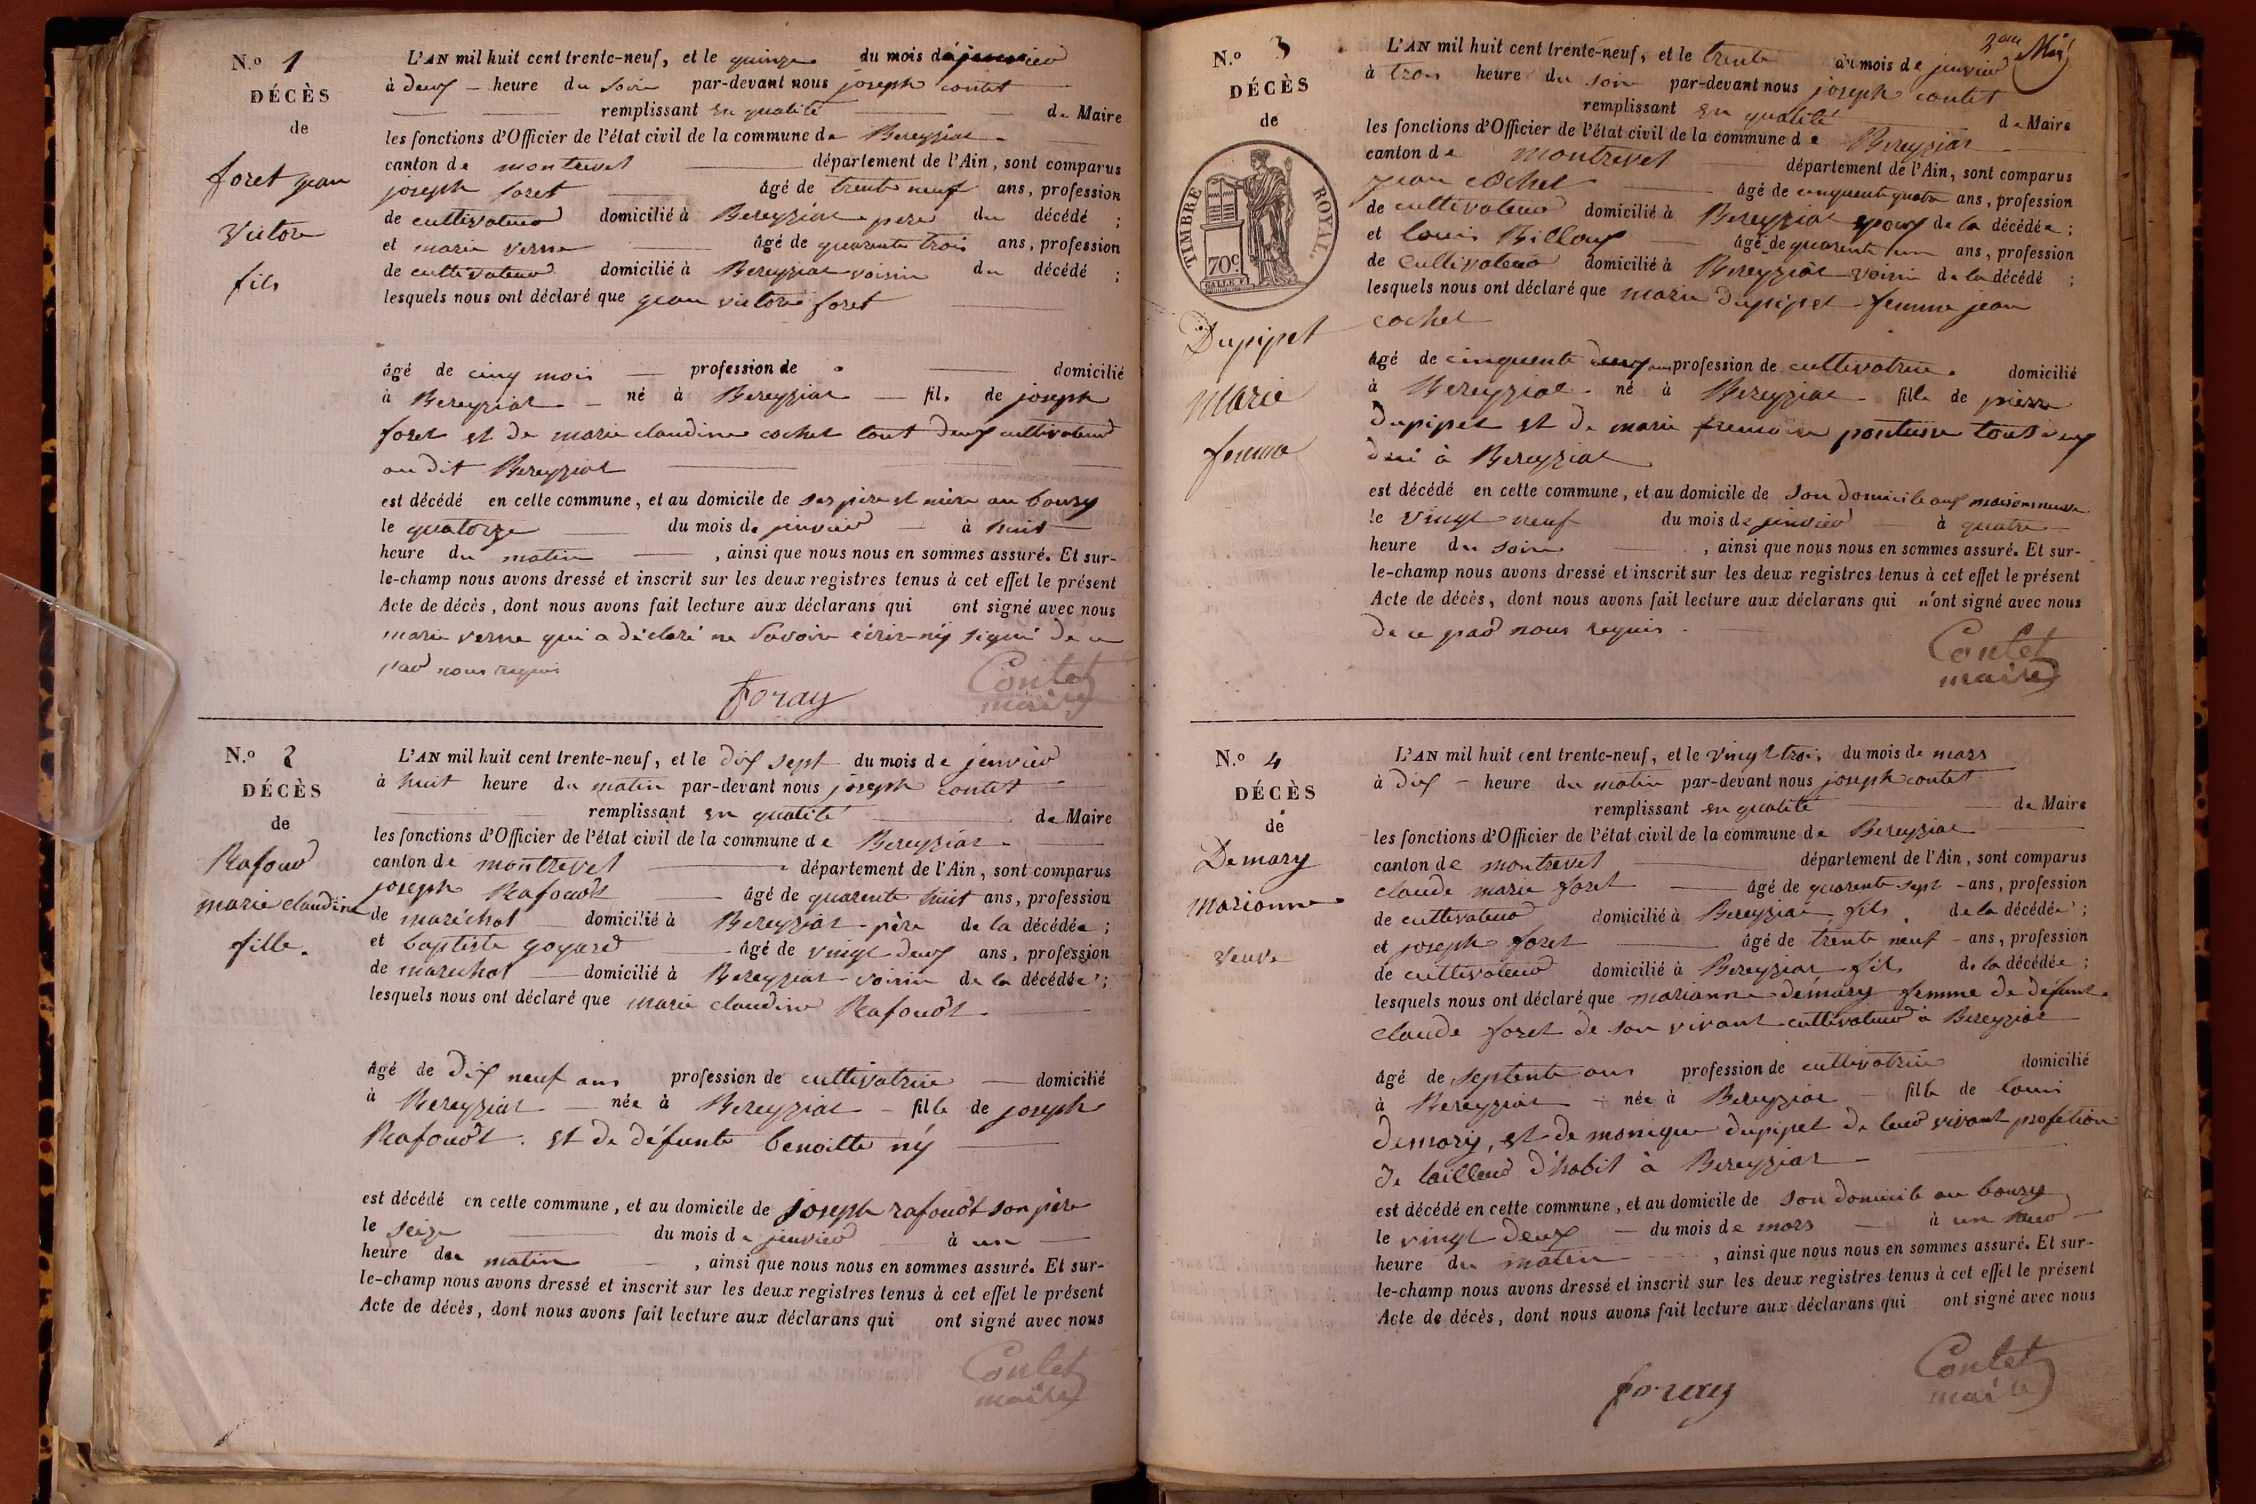 N.o 1
DÉCÈS
de
foret jean
victore
fils
L'AN mil huit cent trente-neuf, et le quinze du mois de janvier
à deux heure du soir par-devant nous joseph contet
remplissant en qualité de Maire
les fonctions d'Officier de l'état civil de la commune de Bereyziat
canton de montrevel département de l'Ain, sont comparus
joseph foret âgé de trente neuf ans, profession
de cultivateur domicilié à Bereyziat père du décédé ;
et marie verne âgé de quarente trois ans, profession
de cultivateur domicilié à Bereyziat voisin du décédé ;
lesquels nous ont déclaré que jean victore foret
âgé de cinq mois profession de domicilié
à Bereyziat né à Bereyziat fils de joseph
foret et de marie claudine cochet tout deux cultivateur
au dit Bereyziat
est décédé en cette commune, et au domicile de ses père et mère au bourg
le quatorze du mois de janvier à huit
heure du matin , ainsi que nous nous en sommes assuré. Et sur-
le-champ nous avons dressé et inscrit sur les deux registres tenus à cet effet le présent
Acte de décès, dont nous avons fait lecture aux déclarans qui ont signé avec nous
marie verne qui a déclaré ne savoir écrire ny signé de ce
par nous requis
foray
Contet
maire
N.o 2
DÉCÈS
de
Rafour
marie claudine
fille.
L'AN mil huit cent trente-neuf, et le dix sept du mois de janvier
à huit heure du matin par-devant nous joseph contet
remplissant en qualité de Maire
les fonctions d'Officier de l'état civil de la commune de Bereyziat
canton de montrevel département de l'Ain, sont comparus
joseph Rafouot âgé de quarente huit ans, profession
de maréchat domicilié à Bereyziat père de la décédée ;
et baptiste goyard âgé de vingt deux ans, profession
de marechat domicilié à Bereyziat voisin de la décédée ;
lesquels nous ont déclaré que marie claudine Rafouot
âgé de dix neuf ans profession de cultivatrice domicilié
à Bereyziat née à Bereyziat fille de joseph
Rafouot. et de défunte benoitte ny
est décédé en cette commune, et au domicile de joseph rafouot son père
le seize du mois de janvier à un
heure du matin , ainsi que nous nous en sommes assuré. Et sur-
le-champ nous avons dressé et inscrit sur les deux registres tenus à cet effet le présent
Acte de décès, dont nous avons fait lecture aux déclarans qui ont signé avec nous
Contet
maire
N.o 3
DÉCÈS
de
TIMBRE ROYAL.
70c
Dupipet
Marie
femme
L'AN mil huit cent trente-neuf, et le trente du mois de janvier
à trois heure du soir par-devant nous joseph contet
remplissant en qualité de Maire
les fonctions d'Officier de l'état civil de la commune de Bereyziat
canton de montrevel département de l'Ain, sont comparus
jean cochet âgé de cinquente quatre ans, profession
de cultivateur domicilié à Bereyziat epoux de la décédée ;
et louis Billoux âgé de quarente un ans, profession
de cultivateur domicilié à Bereyziat voisin de la décédé ;
lesquels nous ont déclaré que marie dupipet femme jean
cochet
âgé de cinquente deux ans profession de cultivatrice. domicilié
à Bereyziat né à Bereyziat fille de pierre
dupipet et de marie pontus tout deux
à Bereyziat
est décédé en cette commune, et au domicile de son domicile aux maisons neuve
le vingt neuf du mois de janvier à quatre
heure du soir , ainsi que nous nous en sommes assuré. Et sur-
le-champ nous avons dressé et inscrit sur les deux registres tenus à cet effet le présent
Acte de décès, dont nous avons fait lecture aux déclarans qui n'ont signé avec nous
de ce par nous requis
Contet
maire
N.o 4
DÉCÈS
de
Demory
marianne
veuve
L'AN mil huit cent trente-neuf, et le vingt trois du mois de mars
à dix heure du matin par-devant nous joseph contet
remplissant en qualité de Maire
les fonctions d'Officier de l'état civil de la commune de Bereyziat
canton de montrevel département de l'Ain, sont comparus
claude marie foret âgé de quarente sept ans, profession
de cultivateur domicilié à Bereyziat fils de la décédée ;
et joseph foret âgé de trente neuf ans, profession
de cultivateur domicilié à Bereyziat fils de la décédée ;
lesquels nous ont déclaré que marianne demory femme de défunt
claude foret de son vivant cultivateur à Bereyziat
âgé de septente ans profession de cultivatrice domicilié
à Bereyziat née à Bereyziat fille de louis
demory, et de monique dupipet de leur vivant profetion
de tailleur d'habit à Bereyziat
est décédé en cette commune, et au domicile de son domicile au bourg
le vingt deux du mois de mars à un
heure du matin , ainsi que nous nous en sommes assuré. Et sur-
le-champ nous avons dressé et inscrit sur les deux registres tenus à cet effet le présent
Acte de décès, dont nous avons fait lecture aux déclarans qui ont signé avec nous
foray
Contet
maire